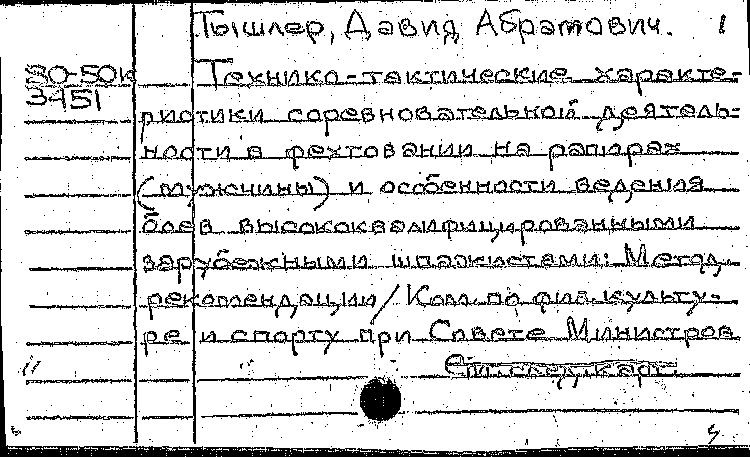 Тышлер, Давид Абрамович. 1
80-50к Технико-тактические характе-
3451 ристики соревновательной деятель-
ности в фехтовании на рапирах
(мужчины) и особенности ведения
боев высококвалифицированными
зарубежными шпажистами: Метод.
рекомендации/Ком. по физ. культу-
ре и спорту при Совете Министров
См. след. карт.